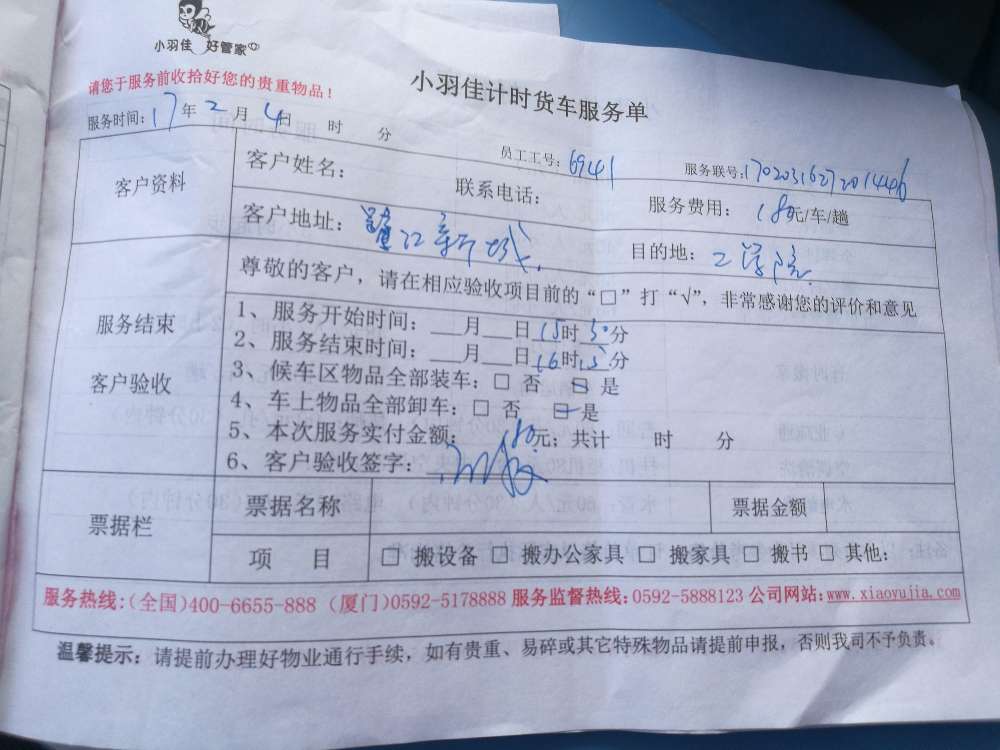 小羽佳 好管家
请您于服务前收拾好您的贵重物品！
小羽佳计时货车服务单
服务时间：17年2月4日 时 分
员工工号：6941
服务联号：17020316272014446
客户资料
客户姓名： 联系电话： 服务费用：180元/车/趟
客户地址：鹭江新城 目的地：工学院
服务结束
客户验收
尊敬的客户，请在相应验收项目前的“□”打“√”，非常感谢您的评价和意见
1、服务开始时间：___月___日15时30分
2、服务结束时间：___月___日16时15分
3、候车区物品全部装车：□ 否 □ 是
4、车上物品全部卸车：□ 否 □ 是
5、本次服务实付金额：180元；共计 时 分
6、客户验收签字：
票据栏
票据名称 票据金额
项 目 □ 搬设备 □ 搬办公家具 □ 搬家具 □ 搬书 □ 其他：
服务热线：(全国)400-6655-888 (厦门)0592-5178888 服务监督热线：0592-5888123 公司网站：www.xiaoyujia.com
温馨提示：请提前办理好物业通行手续，如有贵重、易碎或其它特殊物品请提前申报，否则我司不予负责。